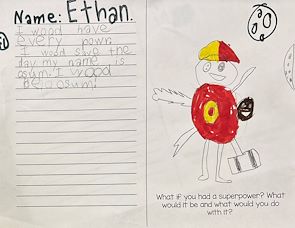 Name: Ethan.
I wood have
every powr.
I wold save the
day my name is
osum. I wood
be osum!
What if you had a superpower? What
would it be and what would you do
with it?